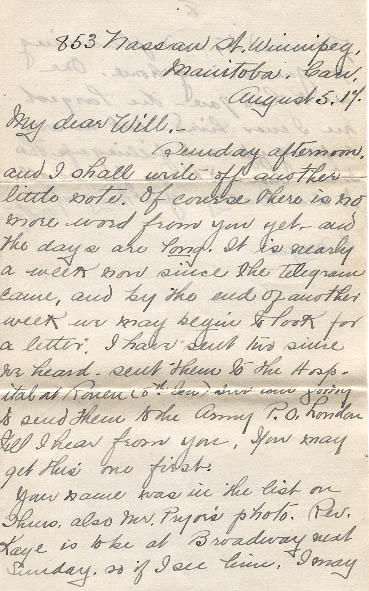 853 Nassau St. Winnipeg,
Manitoba. Can.
August 5. 17.
My dear Will,-
Sunday afternoon,
and I shall write off another
little note. Of course there is no
more word from you yet and
the days are long. It is nearly
a week now since the telegram
came, and by the end of another
week we may begin to look for
a letter. I have sent two since
we heard - sent them to the Hosp-
ital at Rouen (6th Gen) and am going
to send them to the Army P.O. London
till I hear from you. You may
get this one first.
Your name was in the list on
Thurs. also Mr. Pryor's photo. Rev.
Kaye is to be at Broadway next
Sunday, so if I see him, I may